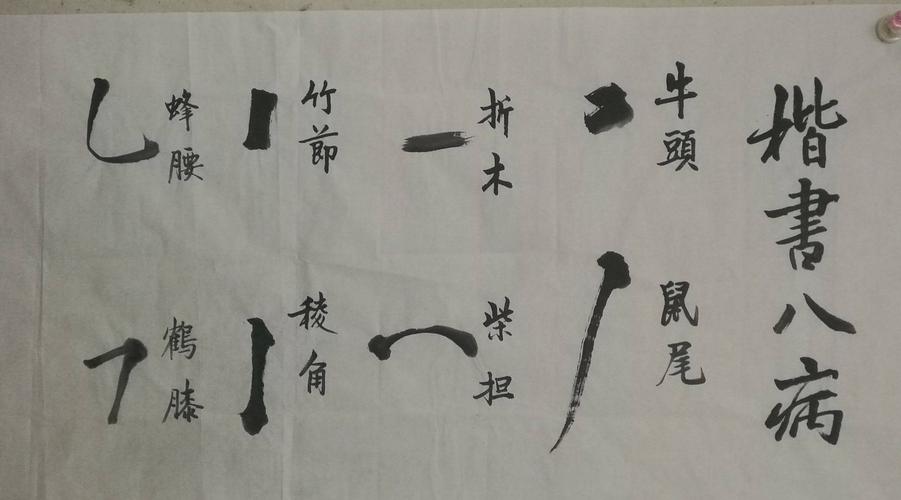 楷書八病
牛頭
鼠尾
折木
柴担
竹節
稜角
蜂腰
鶴膝